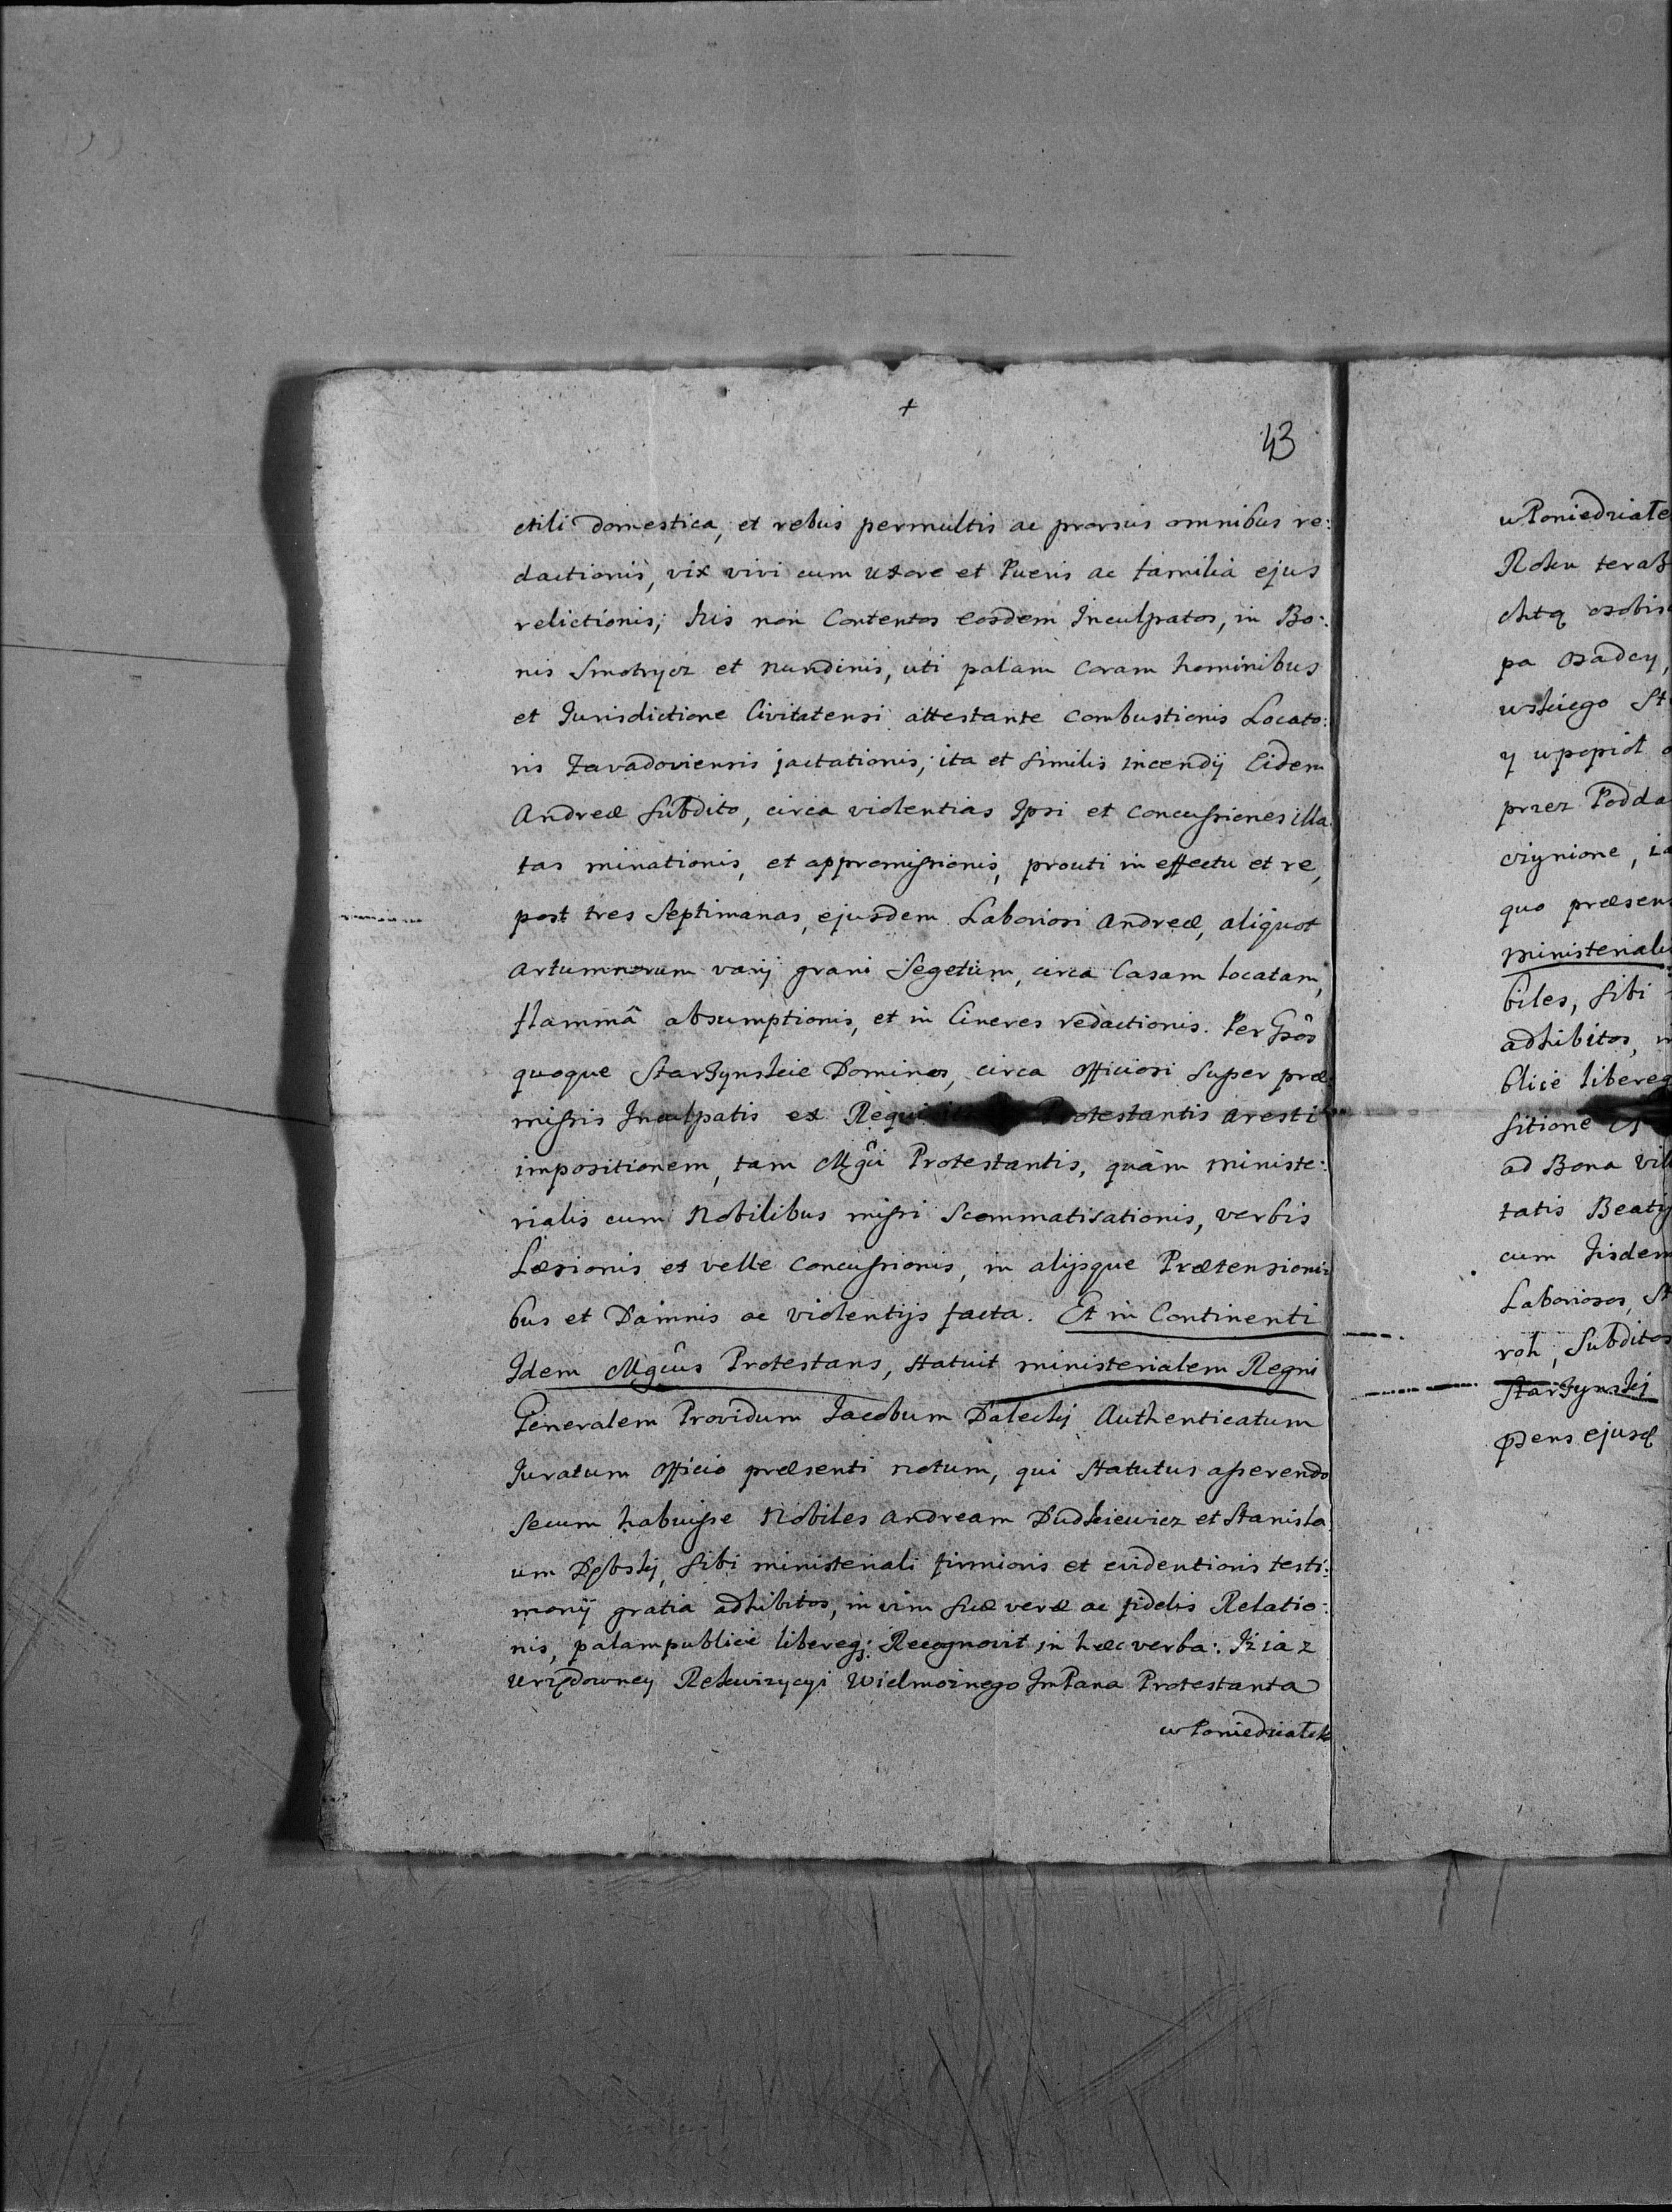 43
ctili domestica, et rebus permultis ac prorsus omnibus re:
dactionis, vix vivi cum uxore et Pueris ac familia ejus
relictionis; his non Contentos eosdem Inculpatos, in Bo:
nis Smotrycz et nundinis, uti palam coram hominibus
et Jurisdictione Civitatensi attestante combustionis Locato:
ris Zavadoviensis jactationis; ita et similis incendij Eidem
Andreæ subdito, circa violentias Ipsi et concussiones illa:
tas minationis, et appromissionis, prouti in effectu et re,
post tres septimanas, ejusdem Laboriosi Andreæ, aliquot
artumnorum varij grani segetum, circa Casam locatam,
flammâ absumptionis, et in Cineres redactionis. Per Gsôs
quoque Starzynskie Dominos, circa officiosi super præ:
missis Inculpatis ex Protestantis aresti
impositionem, tam Mgûi Protestantis, quàm ministe:
rialis cum Nobilibus missi scommatisationis, verbis
Læsionis et velle concussionis, in alijsque Prætensioni:
bus et Damnis ac violentijs facta. Et in Continenti
Idem Mgûus Protestans, statuit ministerialem Regni
Generalem Providum Jacobum Daleckj Authenticatum
Juratum officio præsenti notum, qui statutus asserendo
secum habuisse Nobiles Andream Dudkiewicz et Stanisla:
um sibi ministeriali firmioris et evidentioris testi:
monij gratia adhibitos, in vim suæ veræ ac fidelis Relatio:
nis, palam publicè libereq; Recognovit in hæc verba: Iż ia z
urzędowney Rekwizycyi Wielmożnego ImPana Protestanta
w Poniedziałek
w Poniedziałe
Roku teraz
pa osadcy,
wskiego St
y w popiół
przez Podda
quo præsens
ministeriali
biles, sibi
adhibitos,
blicè libereq
sitione
ad Bona vil
tatis Beaty
cum Iisdem
Laboriosos, St
roh, Subditos
Starzynskj